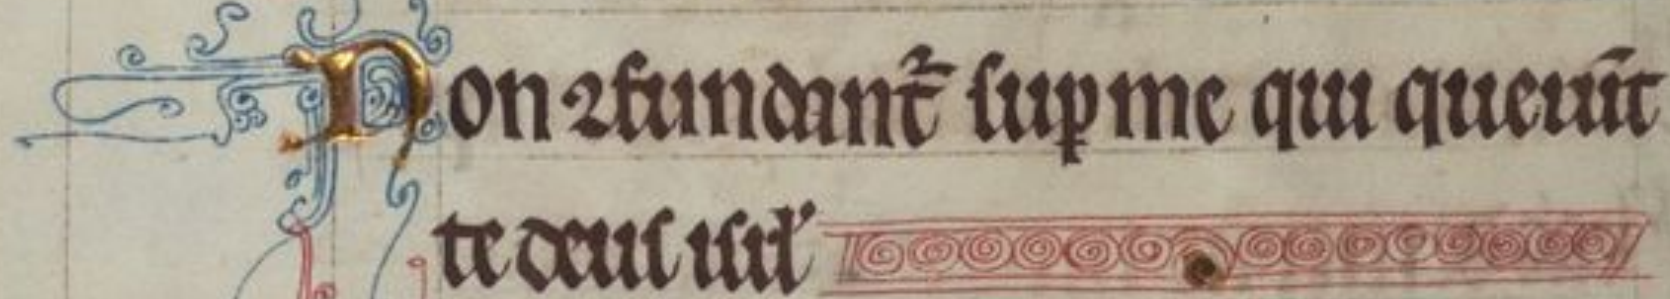 Non ꝯfundant᷑ suꝑ me qui querūt
te deus isrl̕